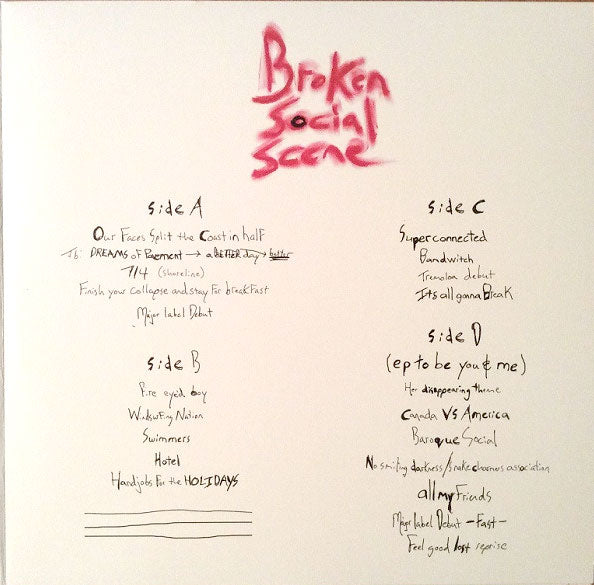 Broken
Social
Scene
side A
Our Faces Split the Coast in half
Ibi DREAMS of Pavement → a BETTER day → better
7/4 (shoreline)
Finish your collapse and stay For breakFast
Major label Debut
side B
Fire eyed boy
Windsurfing Nation
Swimmers
Hotel
Handjobs For the HOLIDAYS
side C
Superconnected
Bandwitch
Tremoloa debut
It's all gonna Break
side D
(ep to be you & me)
Her disappearing theme
Canada VS America
Baroque Social
No smiling darkness/snake charmers association
all my Friends
Major label Debut - Fast -
Feel good lost reprise